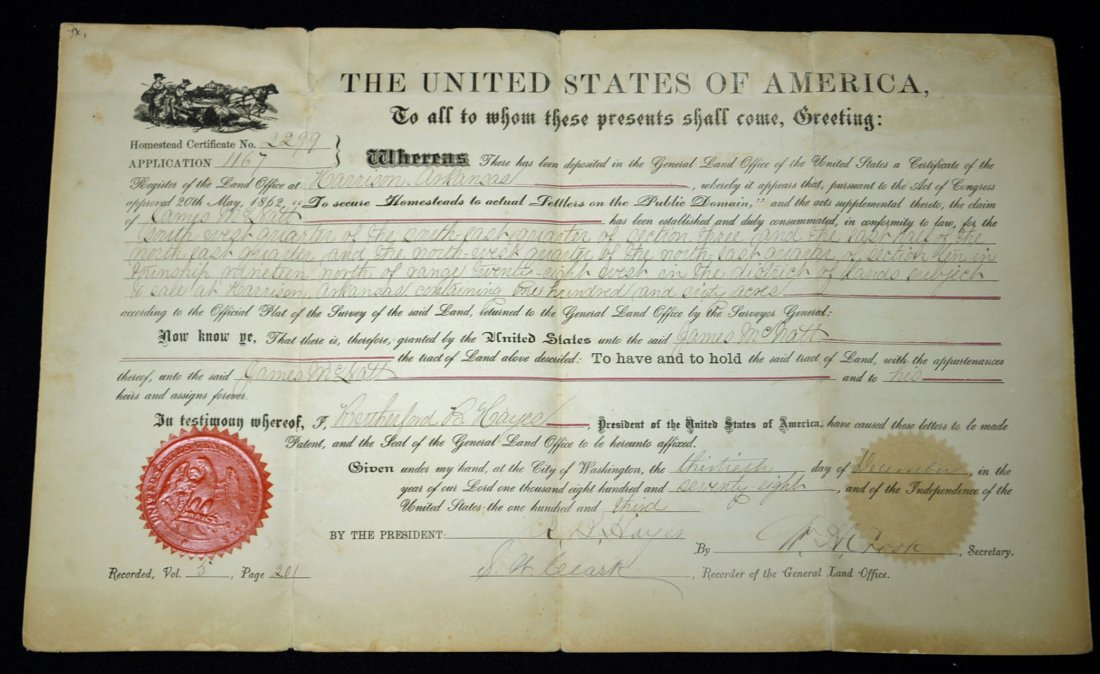 THE UNITED STATES OF AMERICA,
To all to whom these presents shall come, Greeting:
Homestead Certificate No. 2299
APPLICATION 1167
Whereas There has been deposited in the General Land Office of the United States a Certificate of the
Register of the Land Office at Harrison Arkansas, whereby it appears that, pursuant to the Act of Congress
approval 20th May, 1862, "To secure Homesteads to actual Settlers on the Public Domain," and the acts supplemental thereto, the claim
of James McNatt has been established and duly consummated, in conformity to law, for the
south west quarter of the south east quarter of section three and the east half of the
north east quarter and the north west quarter of the north east quarter of section ten in
township nineteen north of range twenty eight west in the district of lands subject
to sale at Harrison, Arkansas containing one hundred and sixty acres
according to the Official Plat of the Survey of the said Land, returned to the General Land Office by the Surveyor General:
Now know ye, That there is, therefore, granted by the United States unto the said James McNatt
the tract of Land above described: To have and to hold the said tract of Land, with the appurtenances
thereof, unto the said James McNatt and to his
heirs and assigns forever.
In testimony whereof, I, Rutherford B. Hayes, President of the United States of America, have caused these letters to be made
Patent, and the Seal of the General Land Office to be hereunto affixed.
Given under my hand, at the City of Washington, the thirtieth day of December, in the
year of our Lord one thousand eight hundred and seventy eight, and of the Independence of the
United States the one hundred and third
BY THE PRESIDENT: R. B. Hayes
By W. H. Crook, Secretary.
Recorded, Vol. 5, Page 201
S. W. Clark, Recorder of the General Land Office.